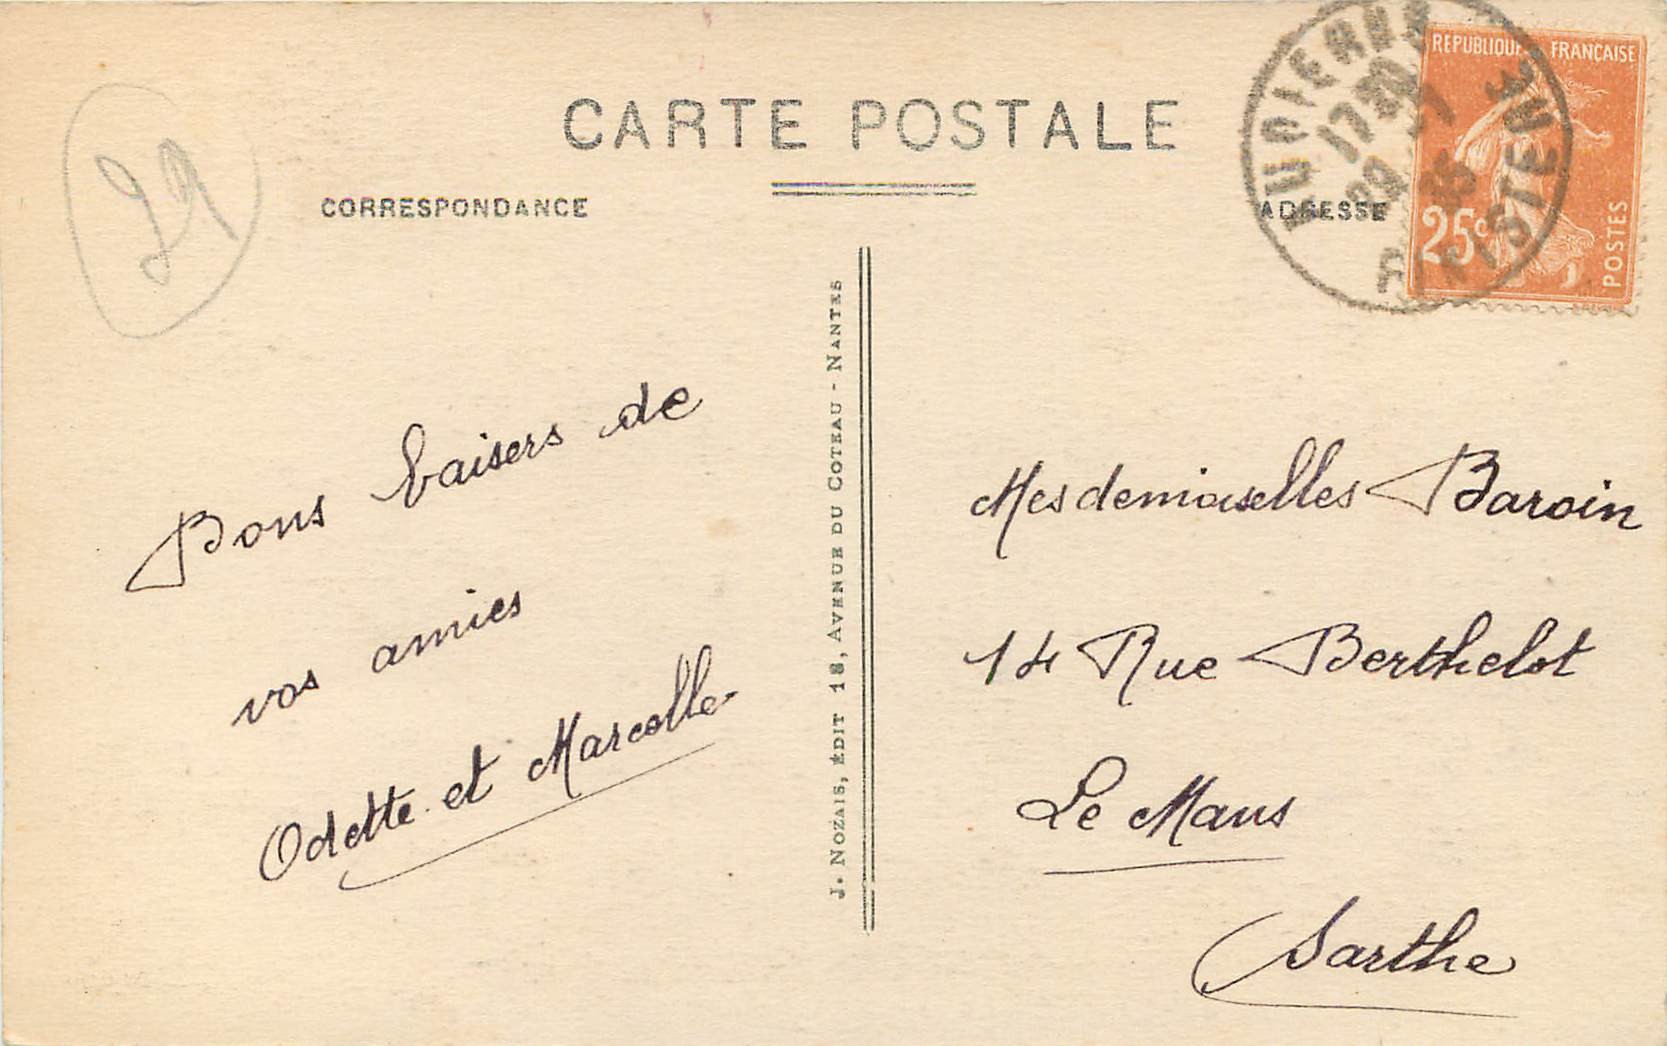 29
CARTE POSTALE
CORRESPONDANCE
ADRESSE
REPUBLIQUE FRANÇAISE
25c
POSTES
AUDIERNE
17 30
29 -7
35
FINISTERE
Bons baisers de
vos amies
Odette et Marcelle
J. NOZAIS, ÉDIT 18, AVENUE DU COTEAU - NANTES
Mesdemoiselles Baroin
14 Rue Berthelot
Le Mans
Sarthe